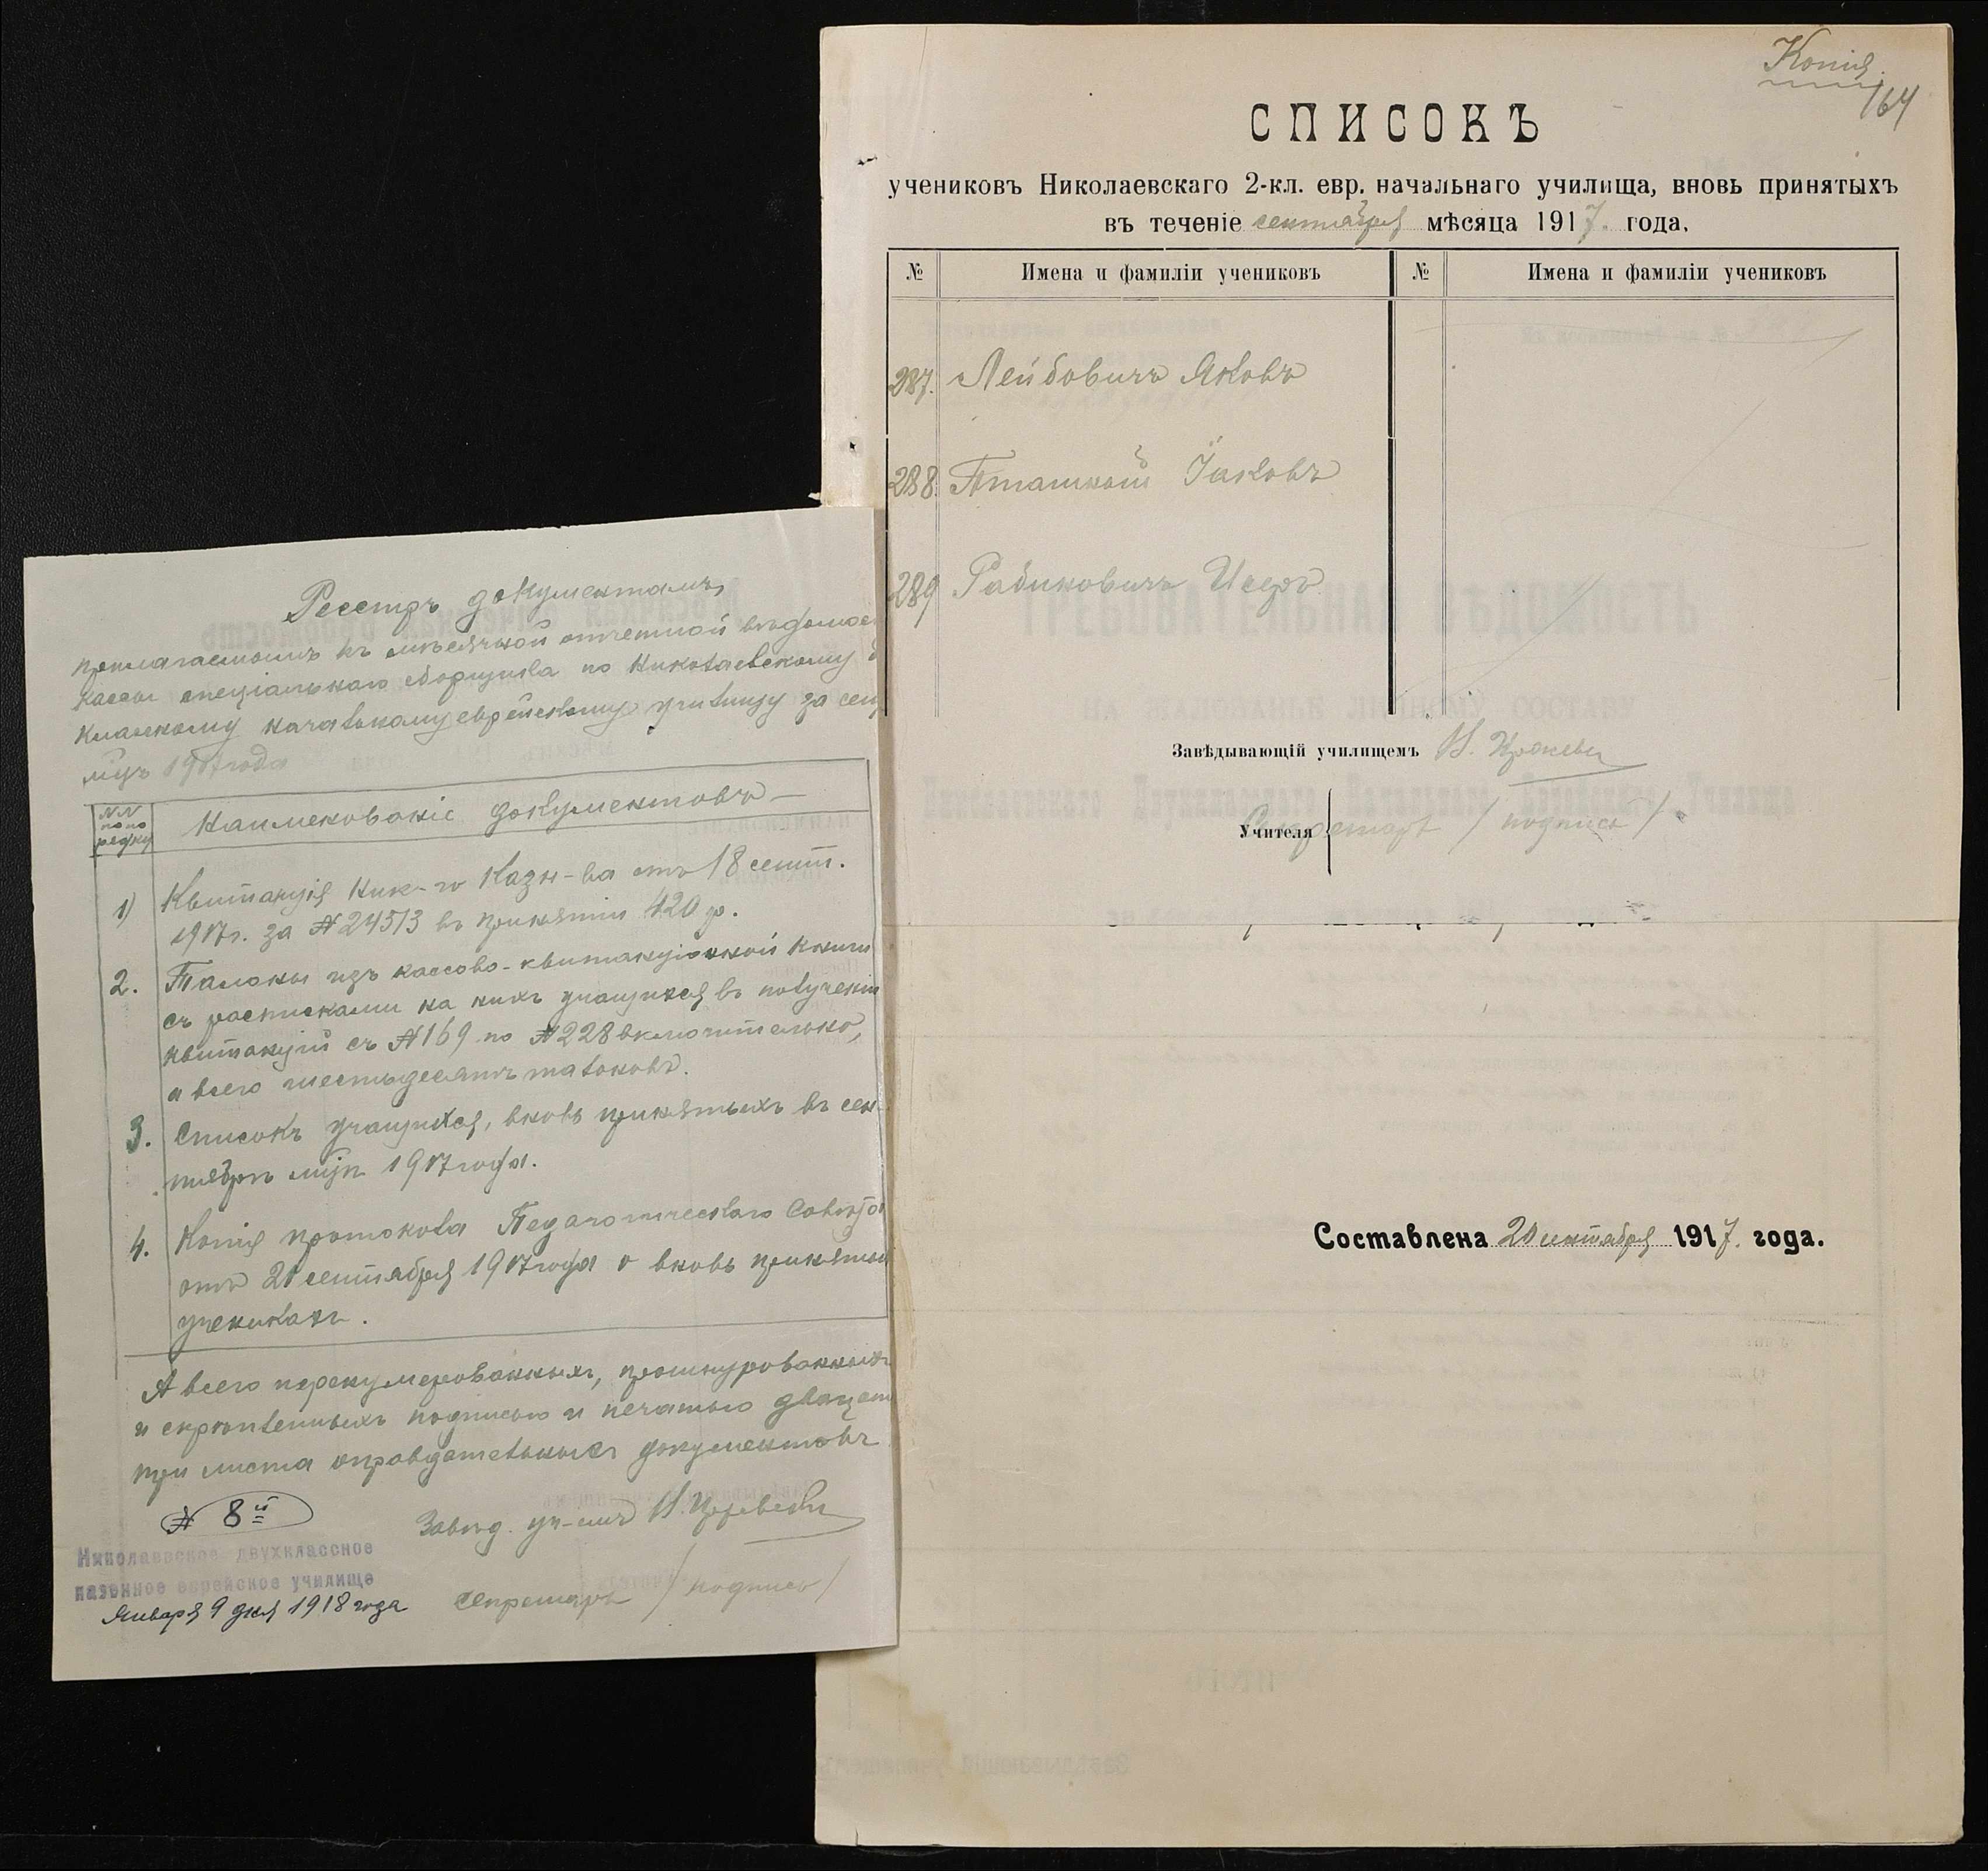 Копія.
164
СПИСОКЪ
учениковъ Николаевскаго 2-кл. евр. начальнаго училища, вновь принятыхъ
въ теченіе сентября мѣсяца 1917. года.
№ Имена и фамиліи учениковъ № Имена и фамиліи учениковъ
287. Лейбовичъ Яковъ
288. Пташкой Іаковъ
289 Рабиновичъ Исеръ
Завѣдывающій училищемъ И.
Учителя Секретарь /подпись/
Составлена 20 сентября 1917. года.
Реестръ документамъ,
прилагаемымъ къ мѣсячной отчетной вѣдомос
кассы спеціальнаго сборщика по Николаевскому
классному начальному еврейскому училищу за сен
мцъ 1917 года
№№ по по рядку Наименованіе документовъ
1) Квитанція Ник-го Казн-ва отъ 18 сент.
1917г. за №24513 въ принятіи 420 р.
2. Талоны изъ кассово-квитанціонной книги
съ росписками на нихъ учащихся въ полученіи
квитанцій съ №169 по №228 включительно,
а всего шестьдесятъ талоновъ.
3. Списокъ учащихся, вновь принятыхъ въ сен-
тябрѣ мцѣ 1917 года.
4. Копія протокола Педагогическаго Совѣта
отъ 20 сентября 1917 года о вновь принятыхъ
ученикахъ.
А всего перенумерованныхъ, прошнурованныхъ
и скрѣпленныхъ подписью и печатью двадцат
три листа оправдательныхъ документовъ
№ 8й
Завѣд. уч-щемъ И.
Николаевское двухклассное
казенное еврейское училище
Января 9 дня 1918 года
Секретарь /подпись/